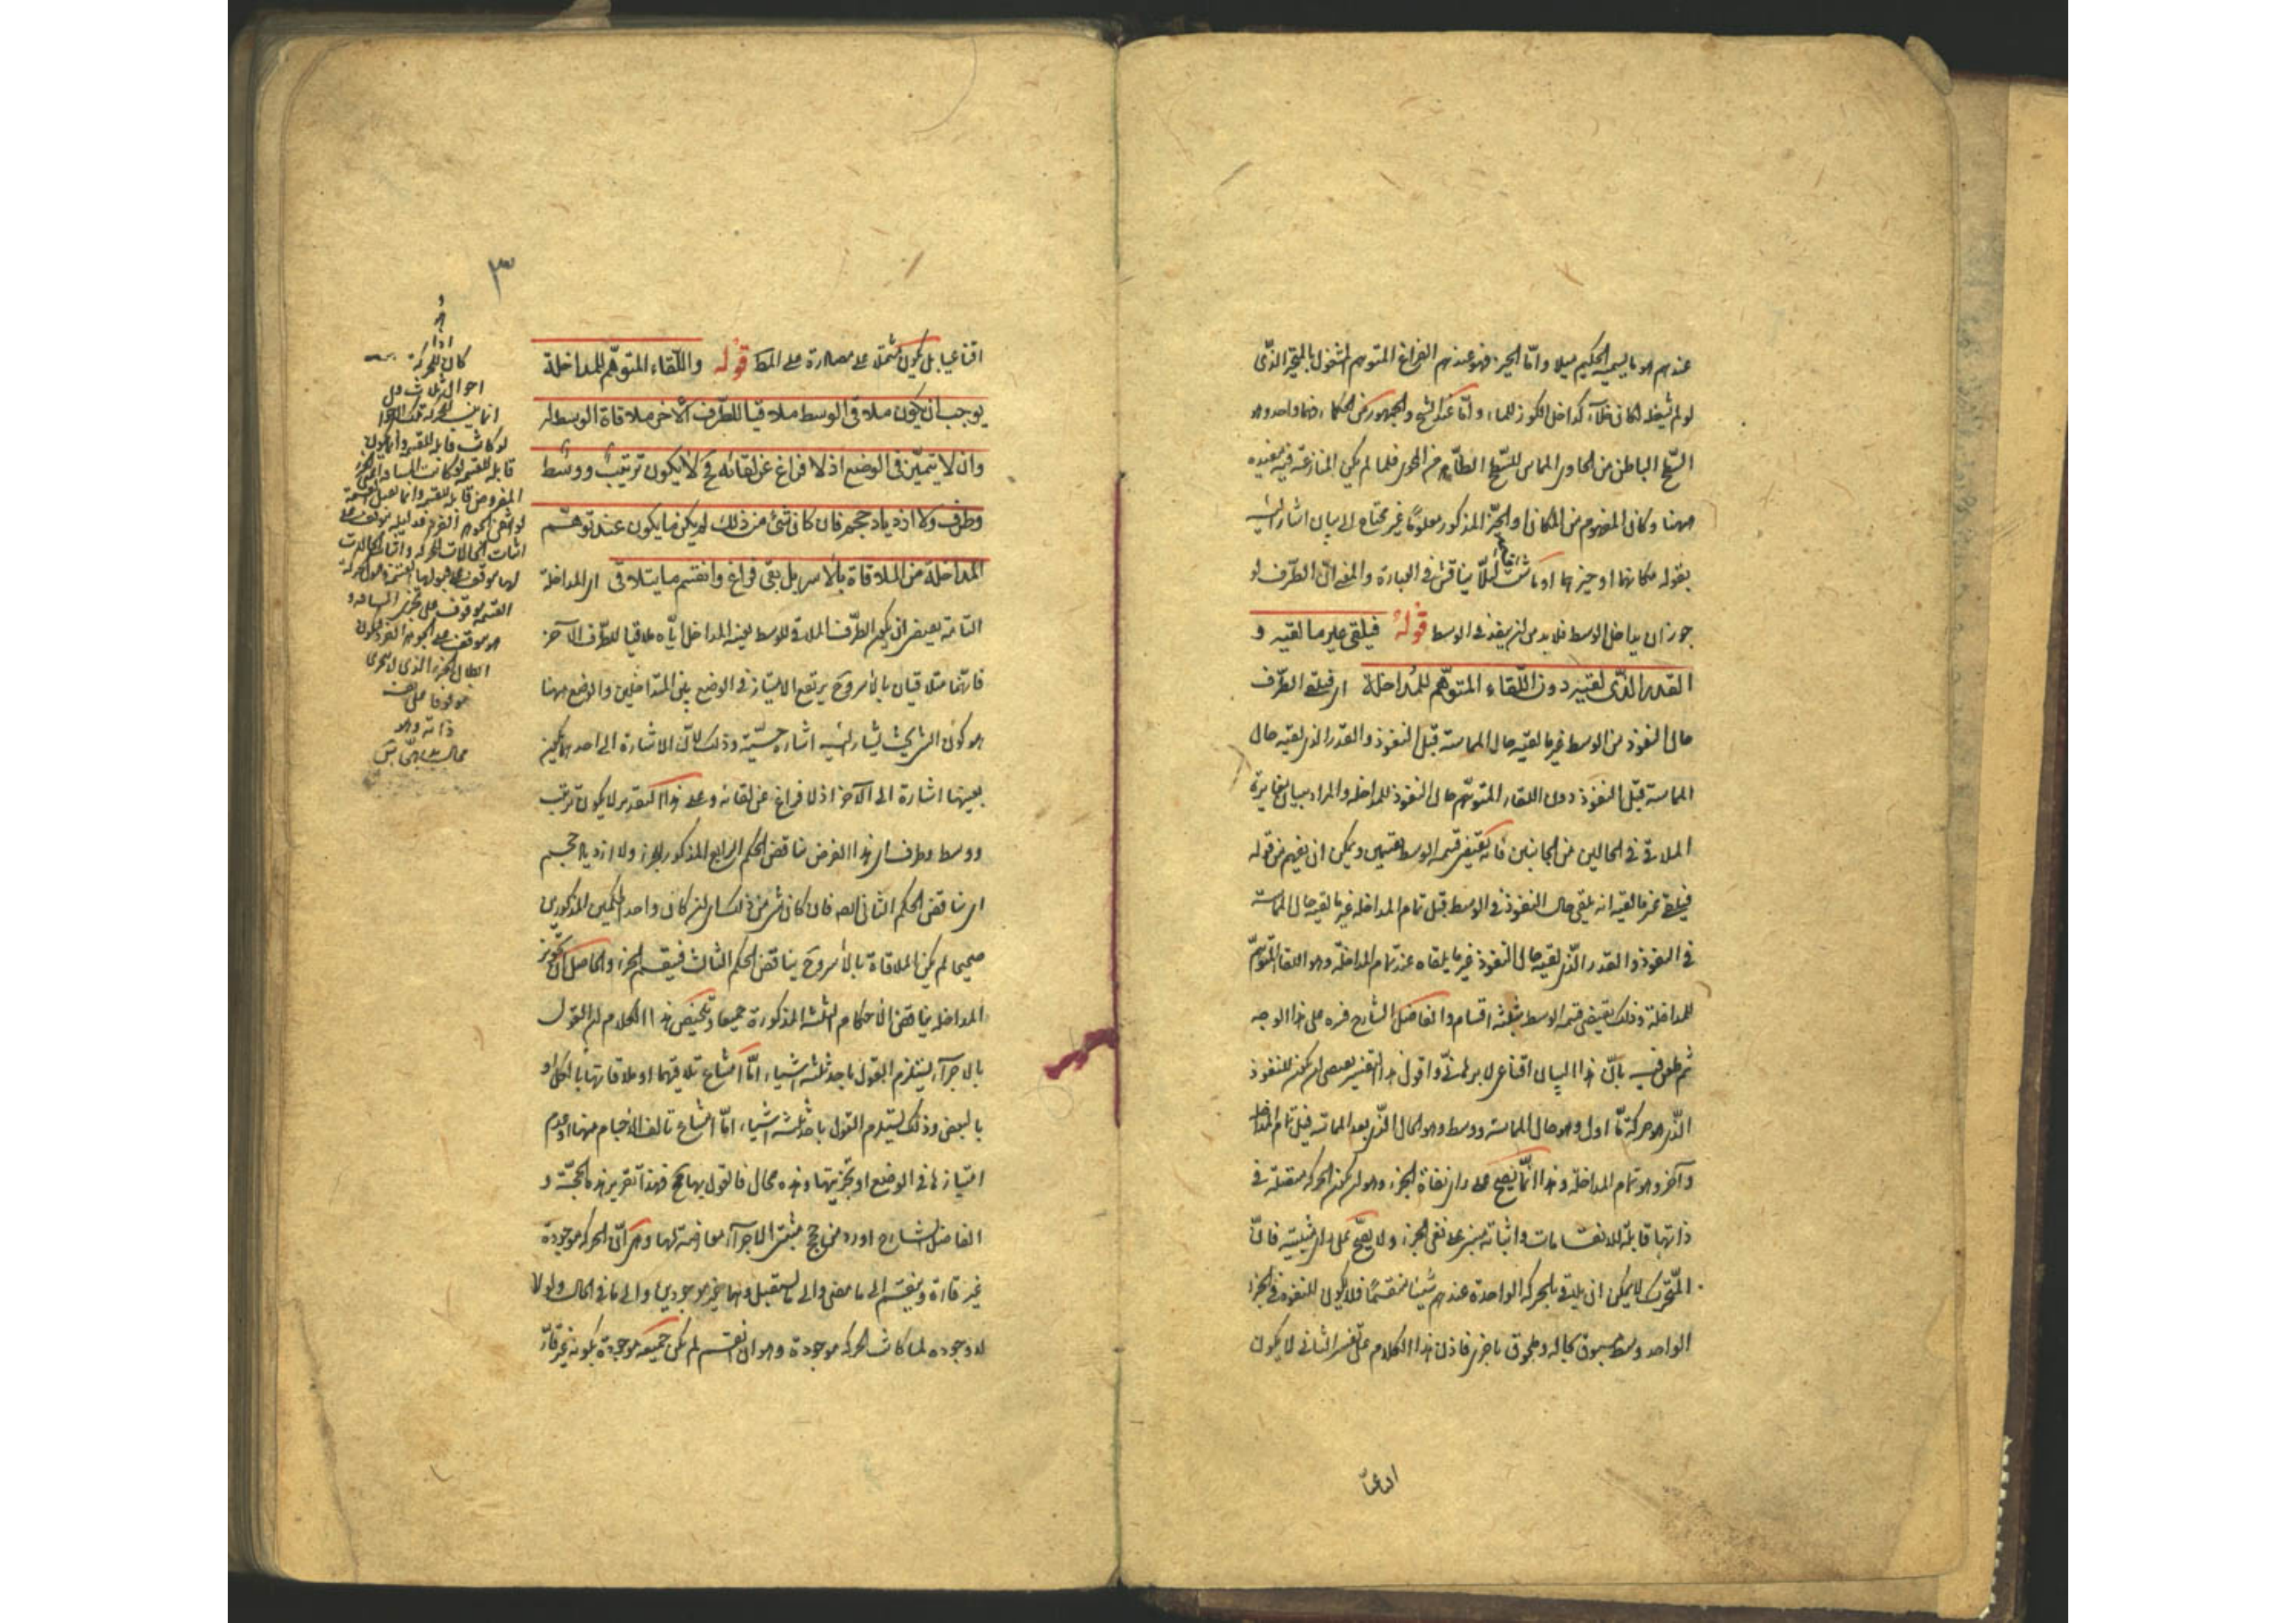 عندهم هو ما يسميه الحكيم ميلا واما الحيز فهو عندهم الفراغ المتوهم المشغول بالمتحيز الذى
لو لم يشغله لكان خلاء كداخل الكوز للماء واما عند الشيخ والجمهور من الحكماء فهما واحد وهو
السطح الباطن من الحاوى المماس للسطح الظاهر من المحوى فلما لم يكن المنازعة فيه مفيده
ههنا وكان المفهوم من المكان او الحيز المذكور معلوما غير محتاج الى بيان اشار اليه
بقوله مكانهما او حيزهما او ما شئت لئلا يناقش فى العبارة والمعنى ان الطرف لو
جوز ان يداخل الوسط فلا بد من ان ينفذ فى الوسط قوله فيلقى غير ما لقيه و
القدر الذى لقيه دون اللقاء المتوهم للمداخلة اى فيلقى الطرف
حال النفوذ من الوسط غير ما لقيه حال المماسة قبل النفوذ والقدر الذى لقيه حال
المماسة قبل النفوذ دون اللقاء المتوهم حال النفوذ للمداخله والمراد بيان مغايرة
الملاقى فى الحالين من الجانبين فانه يقتضى قسمة الوسط بقسمين ويمكن ان يفهم من قوله
فيلقى غير ما لقيه انه يلقى حال النفوذ فى الوسط قبل تمام المداخله غير ما لقيه حال المماسة
فى النفوذ والقدر الذى لقيه حال النفوذ غير ما يلقاه عند تمام المداخلة وهو اللقاء المتوهم
للمداخلة وذلك يقتضى قسمة الوسط بثلثة اقسام والفاضل الشارح فسره على هذا الوجه
ثم طعن فيه بان هذا البيان اقناعى لا برهانى واقول هذا التفسير يقتضى ان يكون للنفوذ
الذى هو حركة ما اول وهو حال المماسة ووسط وهو الحال الذى بعد المماسة قبل تمام المداخلة
وآخر وهو تمام المداخلة وهذا انما يصح على راى نفاة الجزء وهو ان يكون الحركة متصلة فى
ذاتها قابلة للانقسامات واثباته مبنى على نفى الجزء ولا يصح على راى مثبتيه فان
المتحرك لا يمكن ان يلاقى بالحركة الواحدة عندهم شيئا منقسما فلا يكون للنفوذ فى الجزء
الواحد وسط مسبوق بحاله وملحوق باخرى فاذن هذا الكلام على التفسير الثانى لا يكون
٣
اقناعيا بل يكون مشتملا على مصادرة على المط قوله واللقاء المتوهم للمداخلة
يوجب ان يكون ملاقى الوسط ملاقيا للطرف الاخر ملاقاة الوسط له
وان لا يتميز فى الوضع اذ لا فراغ عن لقائه فح لا يكون ترتيب ووسط
وطرف ولا ازدياد حجم فان كان شئ من ذلك لم يكن ما يكون عند توهم
المداخلة من الملاقاة بالاسر بل بقى فراغ وانقسم ما يتلاقى اى المداخلة
التامة يقتضى ان يكون الطرف الملاقى للوسط بعينه المداخل اياه ملاقيا للطرف الآخر
فانهما متلاقيان بالاسر وح يرتفع الامتياز فى الوضع بين المتداخلين والوضع ههنا
هو كون الشئ بحيث يشار اليه اشارة حسية وذلك لان الاشارة الى احدهما يكون
بعينها اشارة الى الآخر اذ لا فراغ عن لقائه وعلى هذا التقدير لا يكون ترتيب
ووسط وطرف اى هذا الفرض يناقض الحكم الرابع المذكور للجزء ولا ازدياد حجم
اى يناقض الحكم الثانى ايضا فان كان شئ من ذلك اى ان كان واحد الحكمين المذكورين
صحيحا لم يكن الملاقاة بالاسر وح يناقض الحكم الثالث فينقسم الجزء والحاصل ان تجويز
المداخلة يناقض الاحكام الثلثة المذكورة جميعا وتلخيص هذا الكلام ان القول
بالاجزآء يستلزم القول باحد ثلثة اشياء اما امتناع تلاقيهما او ملاقاتها بالكل او
بالبعض وذلك يستلزم القول باحد ثلثة اشياء اما امتناع تالف الاجسام منها او عدم
امتيازها فى الوضع او تجزيتها وهذه محال فالقول بها مح فهذا تقرير هذه الحجة و
الفاضل الشارح اورد من حجج مثبتى الاجزآء معارضة لها وهى ان الحركة موجودة
غير قارة وينقسم الى ما مضى والى ما يستقبل وهما غير موجودين والى ما فى الحال ولولا
لا وجوده لما كانت الحركة موجودة وهو ان انقسم لم يكن جميعه موجودة لكونه غير قار
اذا
كان للحركة
احوال ثلاث